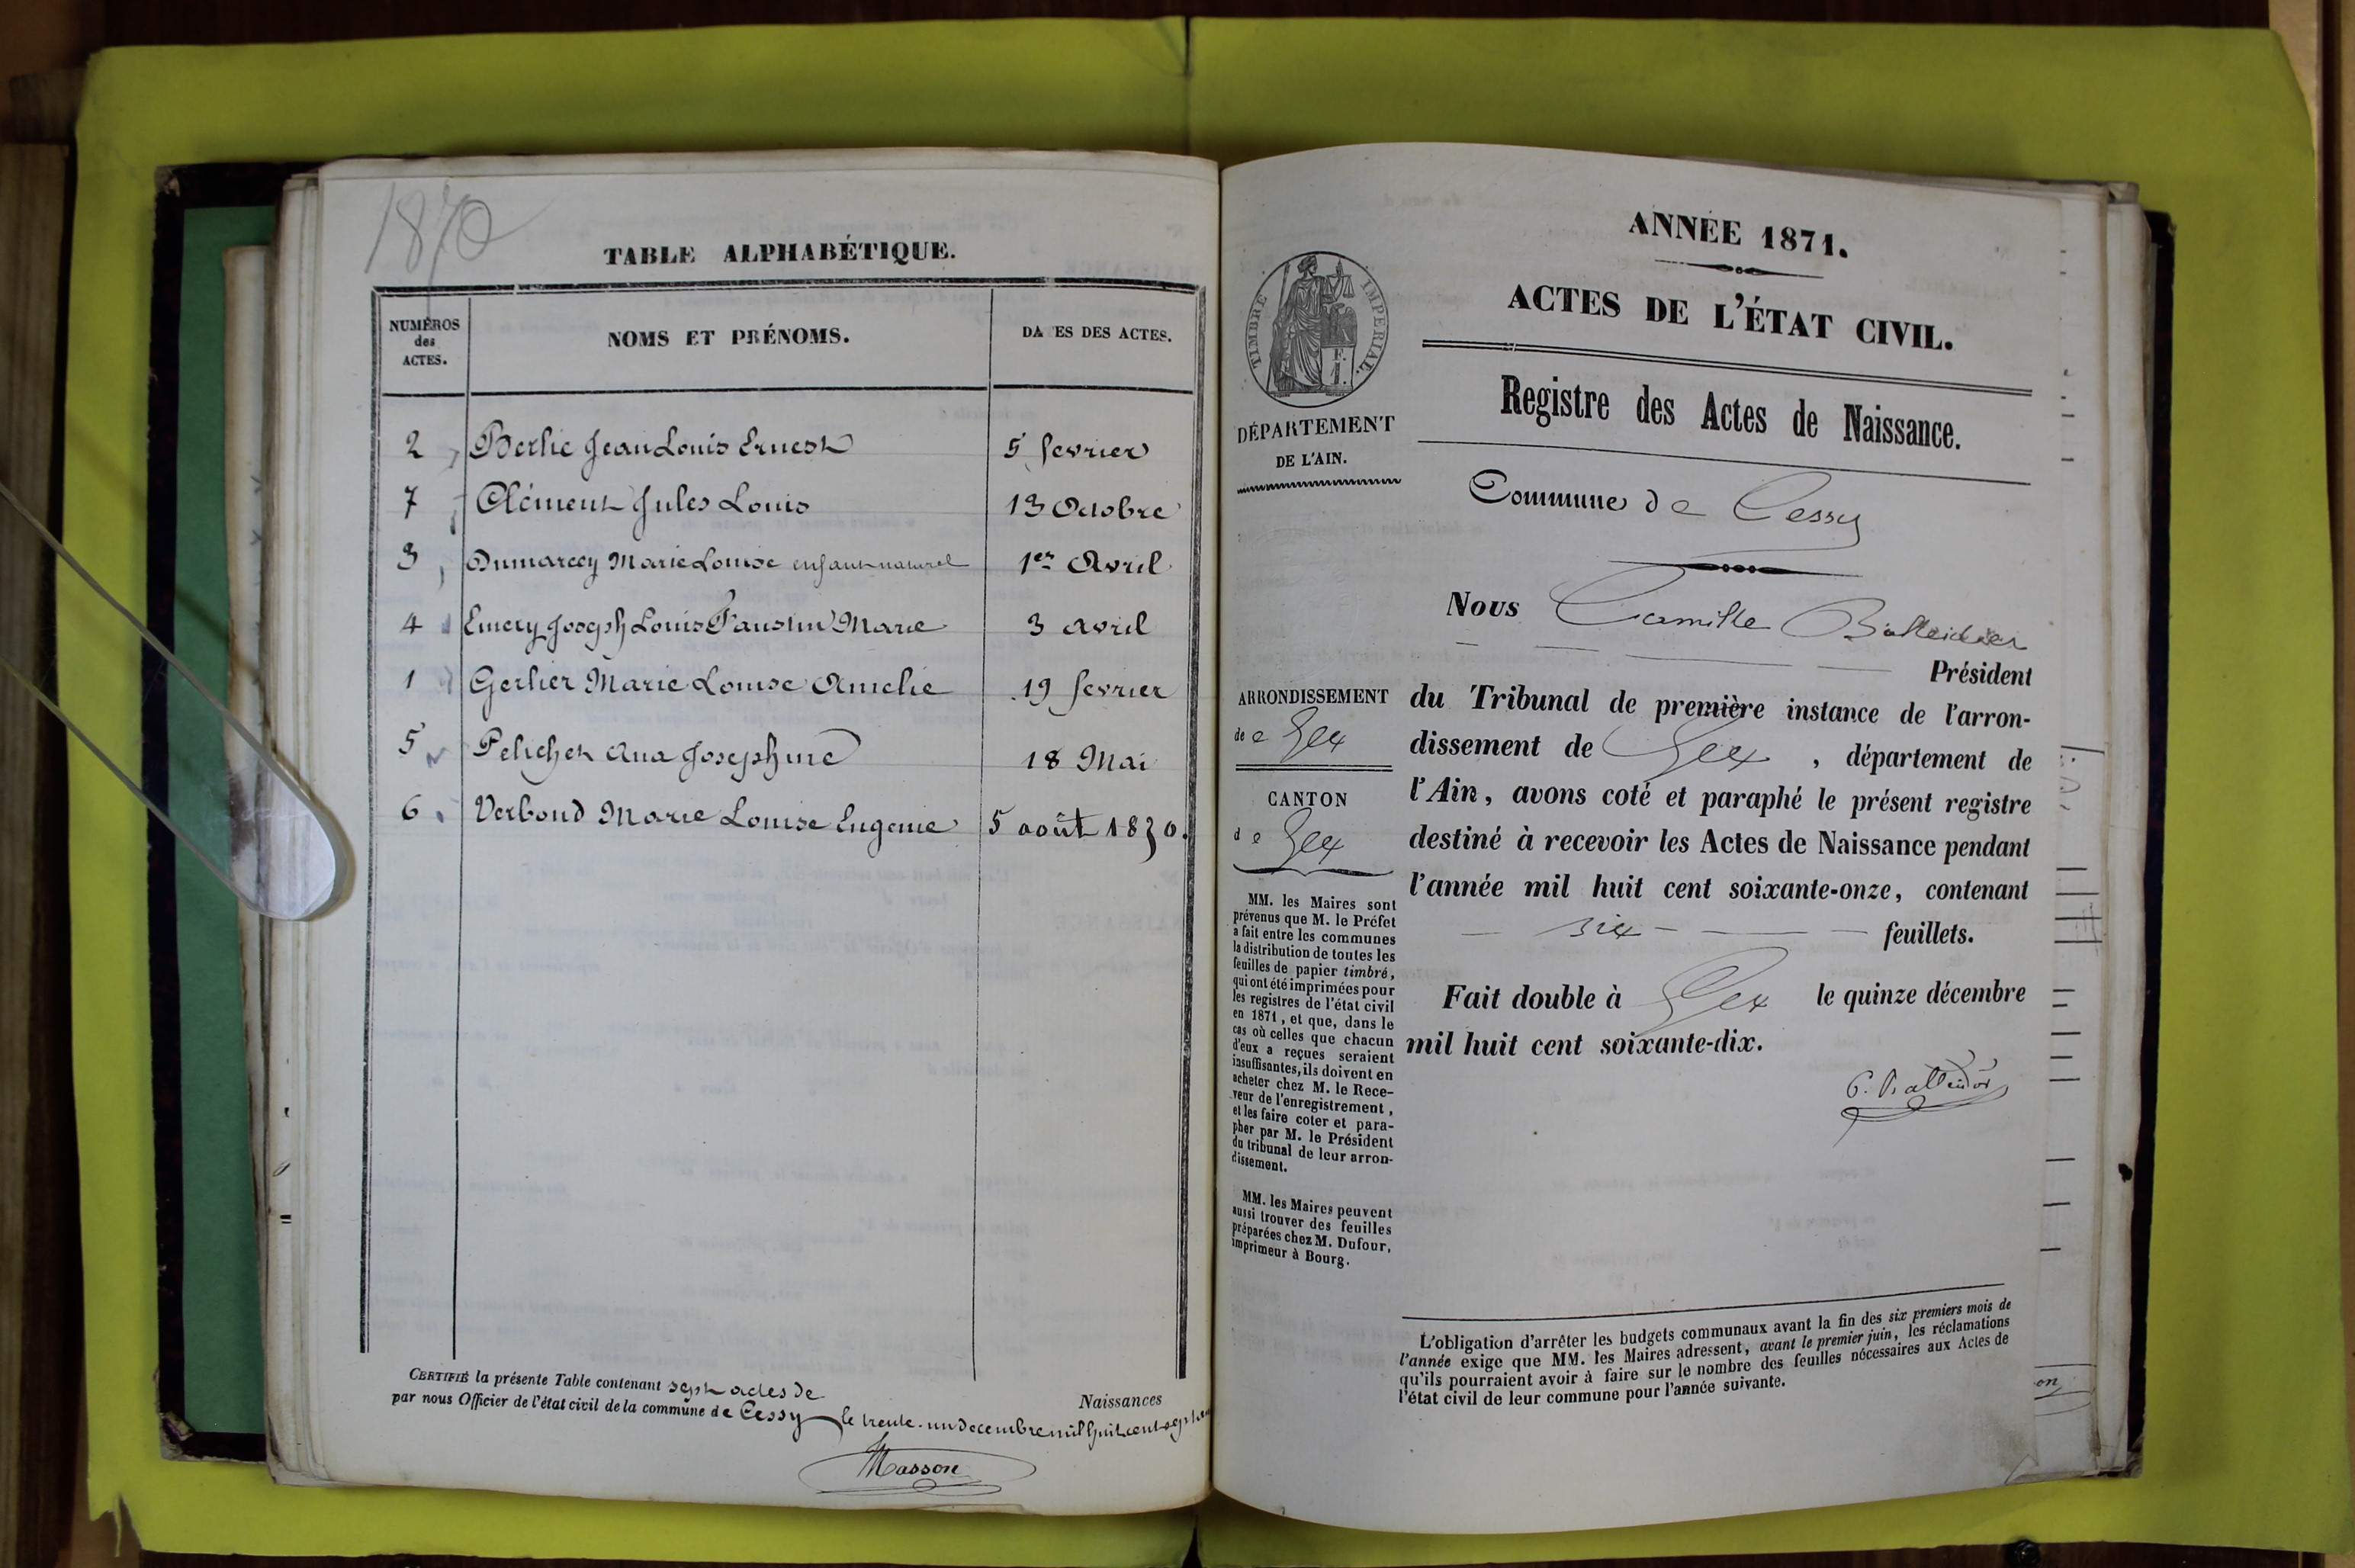 1870
TABLE ALPHABÉTIQUE.
NUMÉROS des ACTES. NOMS ET PRÉNOMS. DA ES DES ACTES.
2 Berlie Jean Louis Ernest 5 fevrier
7 Clément Jules Louis 13 Octobre
3 Dumarcey Marie Louise enfant naturel 1er Avril
4 Emery Joseph Louis Faustin Marie 3 avril
1 Gerlier Marie Louise Amelie 19 fevrier
5 Pelichet Ana Josephine 18 Mai
6 Verboud Marie Louise Eugenie 5 août 1870.
CERTIFIÉ la présente Table contenant sept actes de Naissances
par nous Officier de l'état civil de la commune de Cessy le trente-un decembre mil huit cent
Masson
ANNÉE 1871.
ACTES DE L'ÉTAT CIVIL.
Registre des Actes de Naissance.
TIMBRE IMPÉRIAL.
DÉPARTEMENT
DE L'AIN.
ARRONDISSEMENT
de Gex
CANTON
de Gex
MM. les Maires sont
prévenus que M. le Préfet
a fait entre les communes
la distribution de toutes les
feuilles de papier timbré,
qui ont été imprimées pour
les registres de l'état civil
en 1871, et que, dans le
cas où celles que chacun
d'eux a reçues seraient
insuffisantes, ils doivent en
acheter chez M. le Rece-
veur de l'enregistrement,
et les faire coter et para-
pher par M. le Président
du tribunal de leur arron-
dissement.
MM. les Maires peuvent
aussi trouver des feuilles
préparées chez M. Dufour,
imprimeur à Bourg.
Commune de Cessy
Nous Camille
Président
du Tribunal de première instance de l'arron-
dissement de Gex, département de
l'Ain, avons coté et paraphé le présent registre
destiné à recevoir les Actes de Naissance pendant
l'année mil huit cent soixante-onze, contenant
six feuillets.
Fait double à Gex le quinze décembre
mil huit cent soixante-dix.
L'obligation d'arrêter les budgets communaux avant la fin des six premiers mois de
l'année exige que MM. les Maires adressent, avant le premier juin, les réclamations
qu'ils pourraient avoir à faire sur le nombre des feuilles nécessaires aux Actes de
l'état civil de leur commune pour l'année suivante.